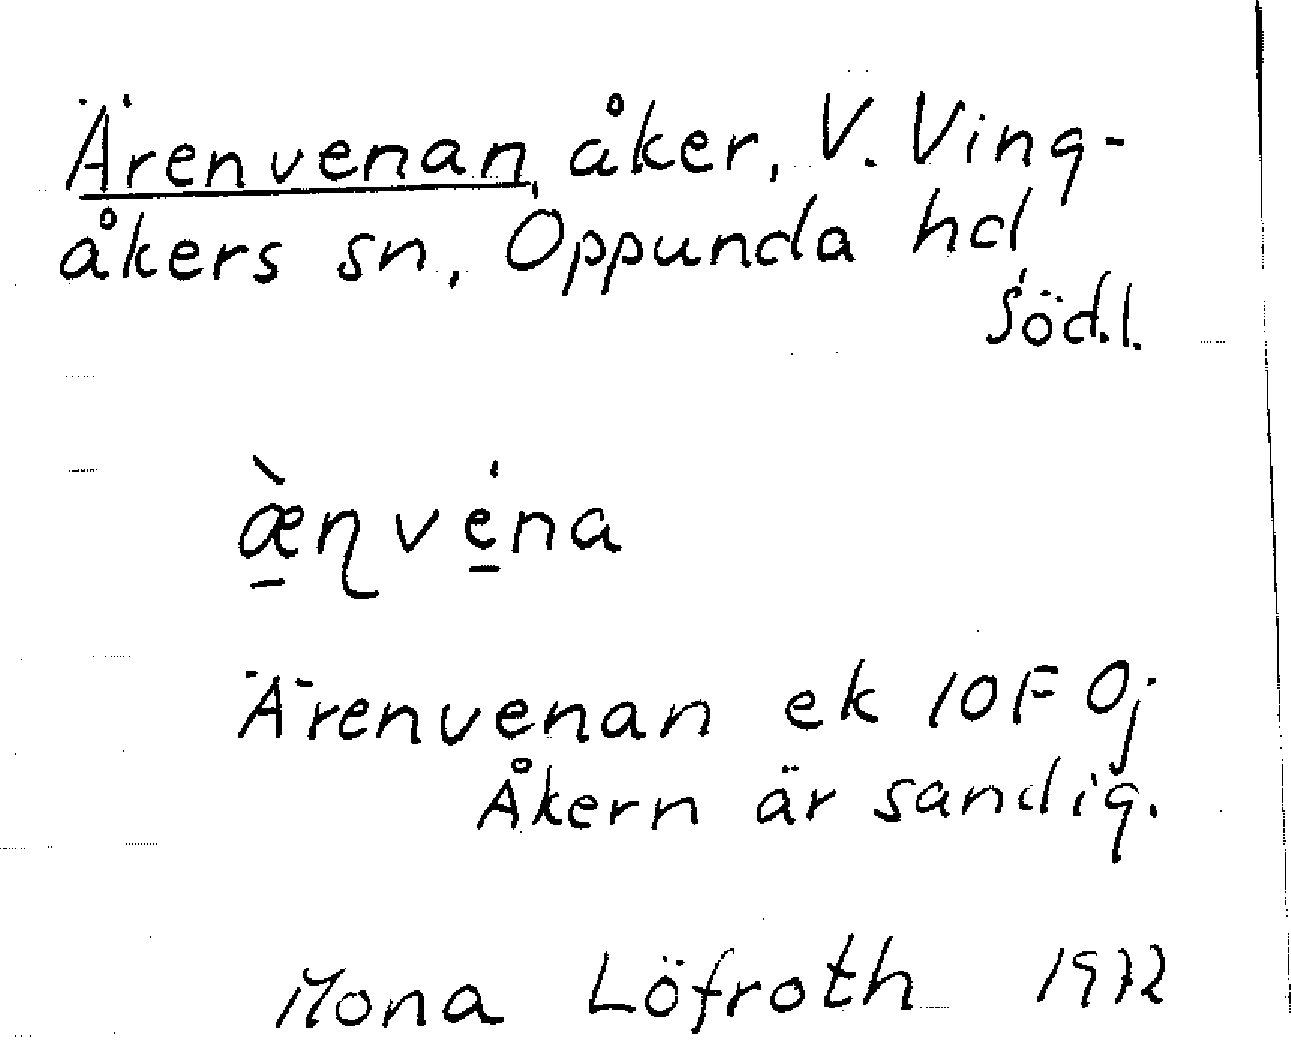 Ärenvenan, åker, V. Ving-
åkers sn, Oppunda hd,
Söd.l.
æ̠̀ɳvé̠na
Ärenvenan ek 10F 0j
Åkern är sandig.
Mona Löfroth 1972